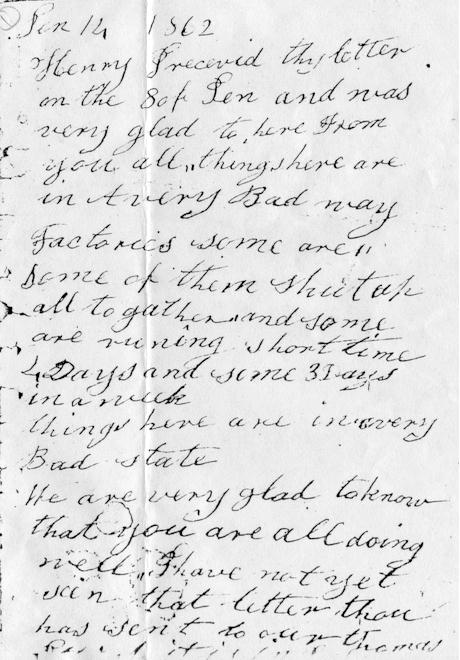 Jen 14 1862
Henry I recevid thy letter
on the 8 of Jen and was
very glad to here From
you all, things here are
in A very Bad way
Factories some are
Some of them shut up
all to gather and some
are runing short time
4 Days and some 3 Days
in a week
things here are in a very
Bad state
We are very glad to know
that you are all doing
well, I have not yet
sein that letter thou
has sent to our thomas